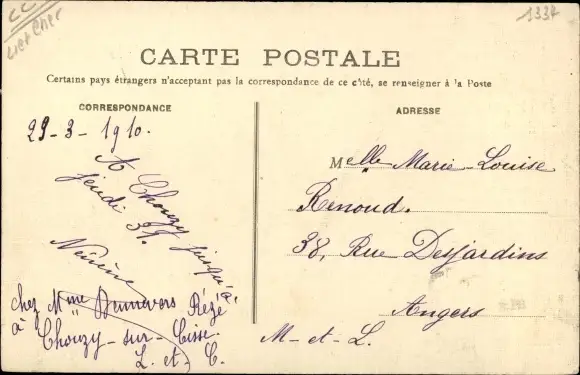 Loir et Cher
1337
CARTE POSTALE
Certains pays étrangers n'acceptant pas la correspondance de ce côté, se renseigner à la Poste
CORRESPONDANCE
29-3-1910.
A Chouzy jusqu'à
jeudi 31.
chez Mme Bennevers Régé
à " Chouzy-sur-Cisse.
L.-et-C.
ADRESSE
Melle Marie-Louise
Renoud.
38, Rue Desjardins
Angers
M-et-L.